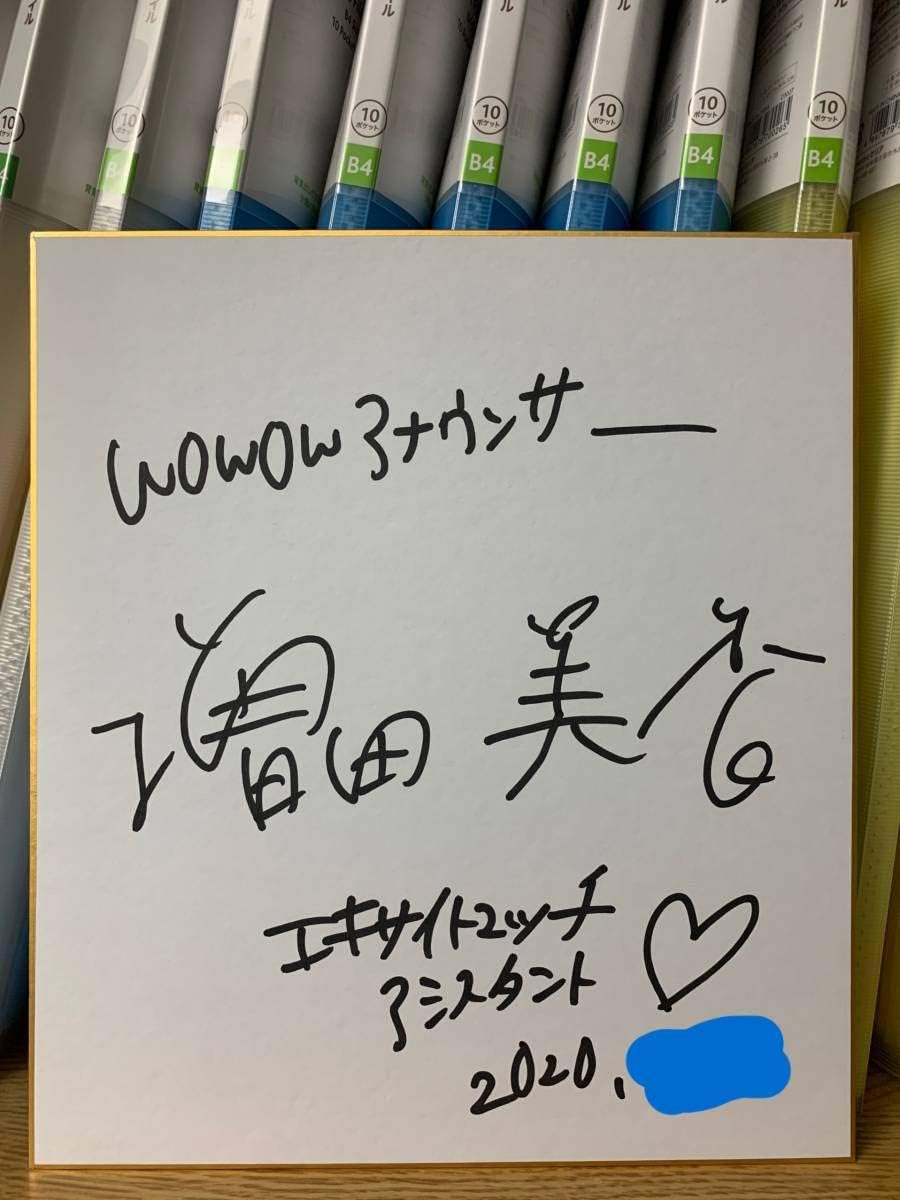 10
ポケット
B4
10
ポケット
B4
10
ポケット
B4
10
ポケット
B4
10
ポケット
B4
WOWOWアナウンサー
増田 美香
エキサイトマッチ
アシスタント
2020.